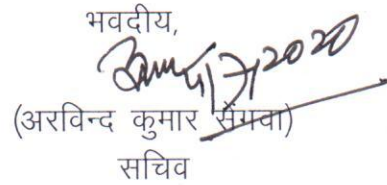 भवदीय,
2020
(अरविन्द कुमार सेंगवा)
सचिव